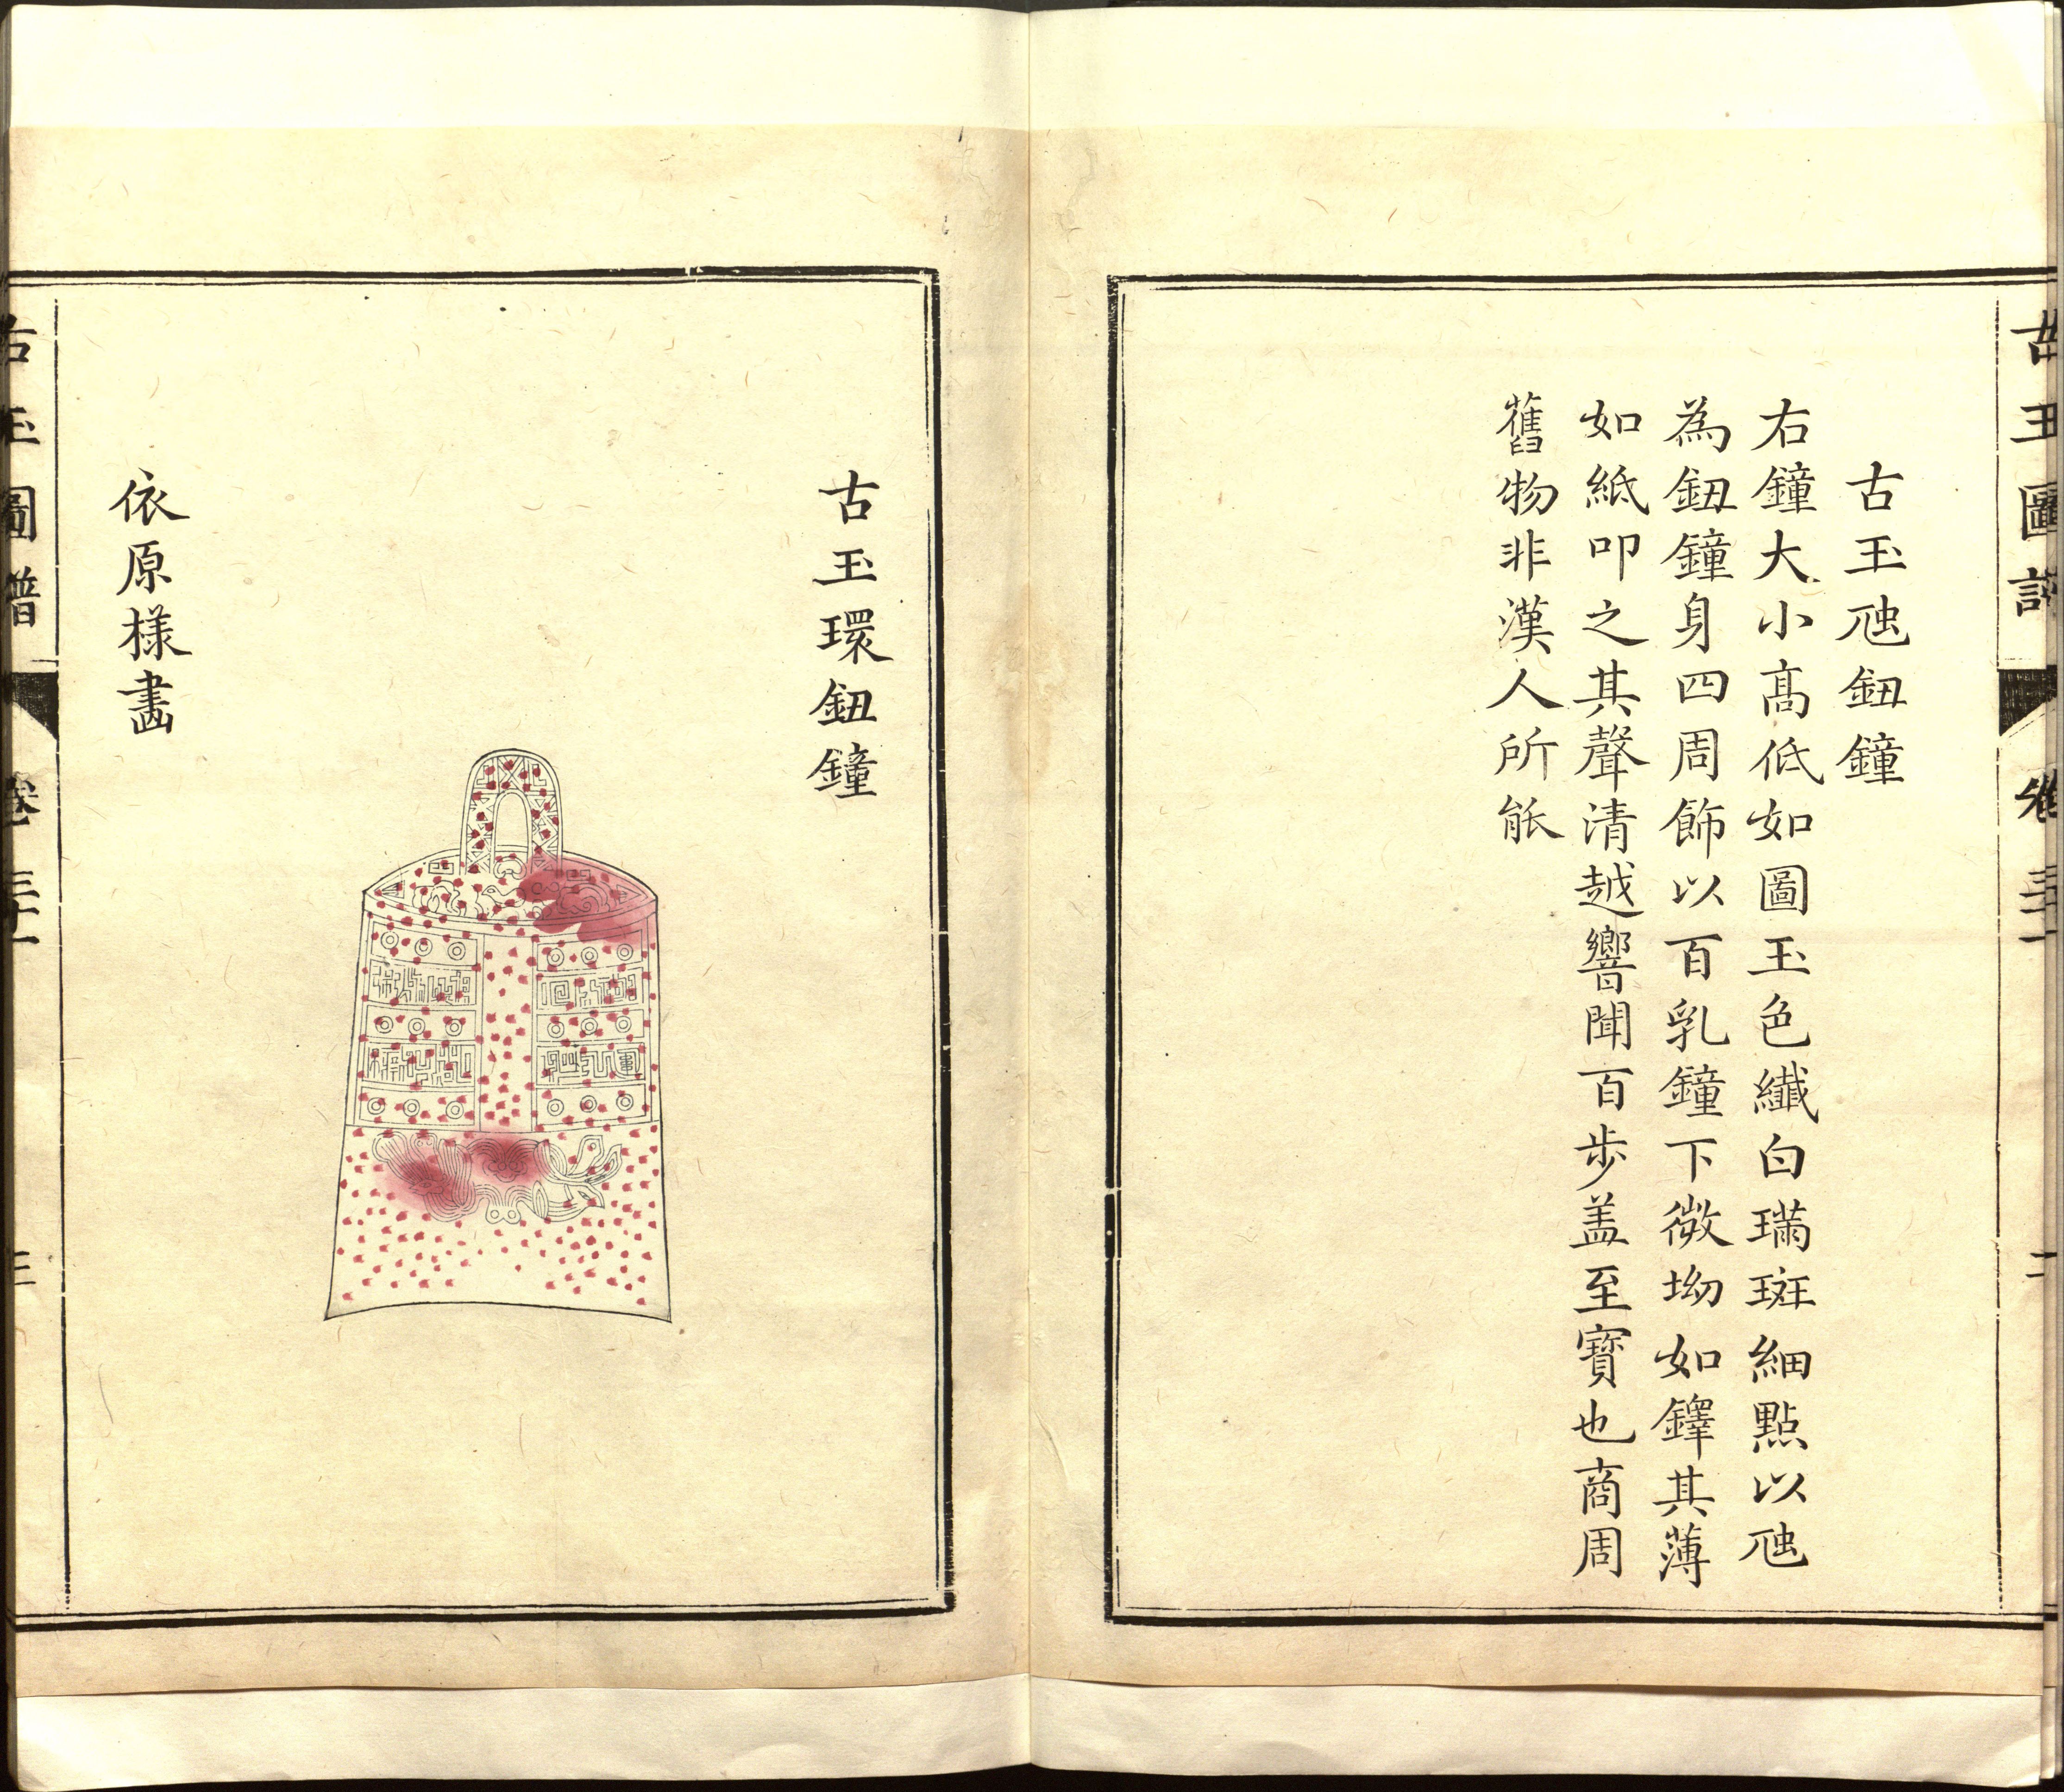 古玉圖譜 卷三十一 二
古玉虺鈕鐘
右鐘大小高低如圖玉色纖白璊斑細點以虺
為鈕鐘身四周飾以百乳鐘下微坳如鐸其薄
如紙叩之其聲清越響聞百步蓋至寶也商周
舊物非漢人所能
古玉環鈕鐘
依原樣畫
古玉圖譜 卷三十一 三